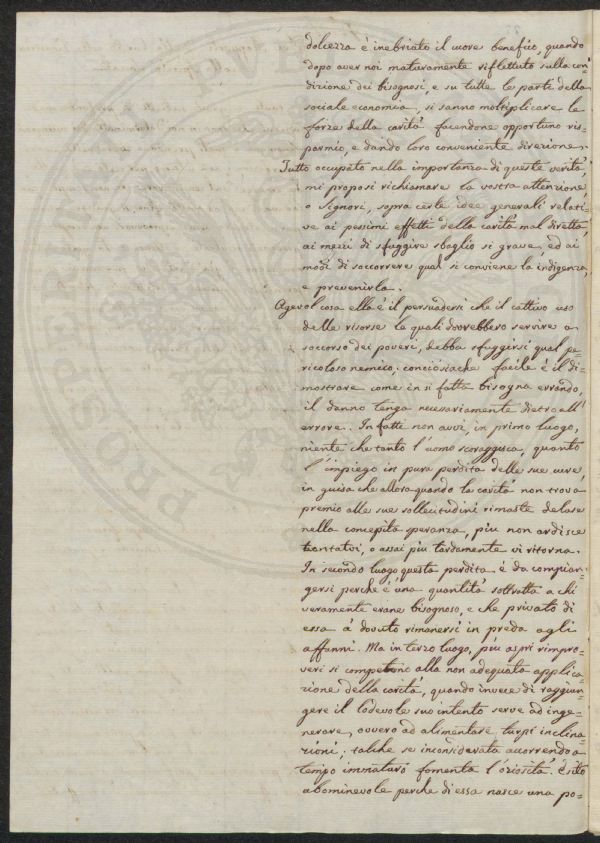 dolcezza è inebriato il cuore benefico, quando
dopo aver noi maturamente riflettuto sulla con=
dizione dei bisognosi, e su tutte le parti della
sociale economia, si sanno moltiplicare le
forze della carità facendone opportuno ris=
parmio, e dando loro conveniente direzione.
Tutto occupato nella importanza di queste verità,
mi proposi richiamare la vostra attenzione,
o Signori, sopra certe idee generali relati=
ve ai pessimi effetti della carità mal diretta,
ai mezzi di sfuggire sbaglio si grave, ed ai
modi di soccorrere qual si conviene la indigenza,
e prevenirla.
Agevol cosa ella è il persuadersi che il cattivo uso
delle risorse le quali dovrebbero servire a
soccorso dei poveri, debba sfuggirsi qual pe=
ricoloso nemico; conciosiache facile è il di=
mostrare come in si fatta bisogna errando,
il danno tenga necessariamente dietro all'
errore. In fatti non avvi, in primo luogo,
niente che tanto l'uomo scoraggisca, quanto
l'impiego in pura perdita delle sue cure,
in guisa che allora quando la carità non trova
premio alle sue sollecitudini rimaste deluse
nella concepita speranza, più non ardisce
tentatvi, o assai più tardamente vi ritorna.
In secondo luogo questa perdita è da compian=
gersi perchè è una quantità sottratta a chi
veramente erane bisognoso, e che privato di
essa à dovuto rimanersi in preda agli
affanni. Ma in terzo luogo, più aspri rimpro=
veri si competono alla non adequata applica=
zione della carità, quando invece di raggiun=
gere il lodevole suo intento serve ad inge=
nerare, ovvero ad alimentare turpi inclina=
zioni; talche se inconsiderata accorrendo a
tempo immaturo fomenta l'oziosità. Esito
abominevole perche di essa nasce una po=